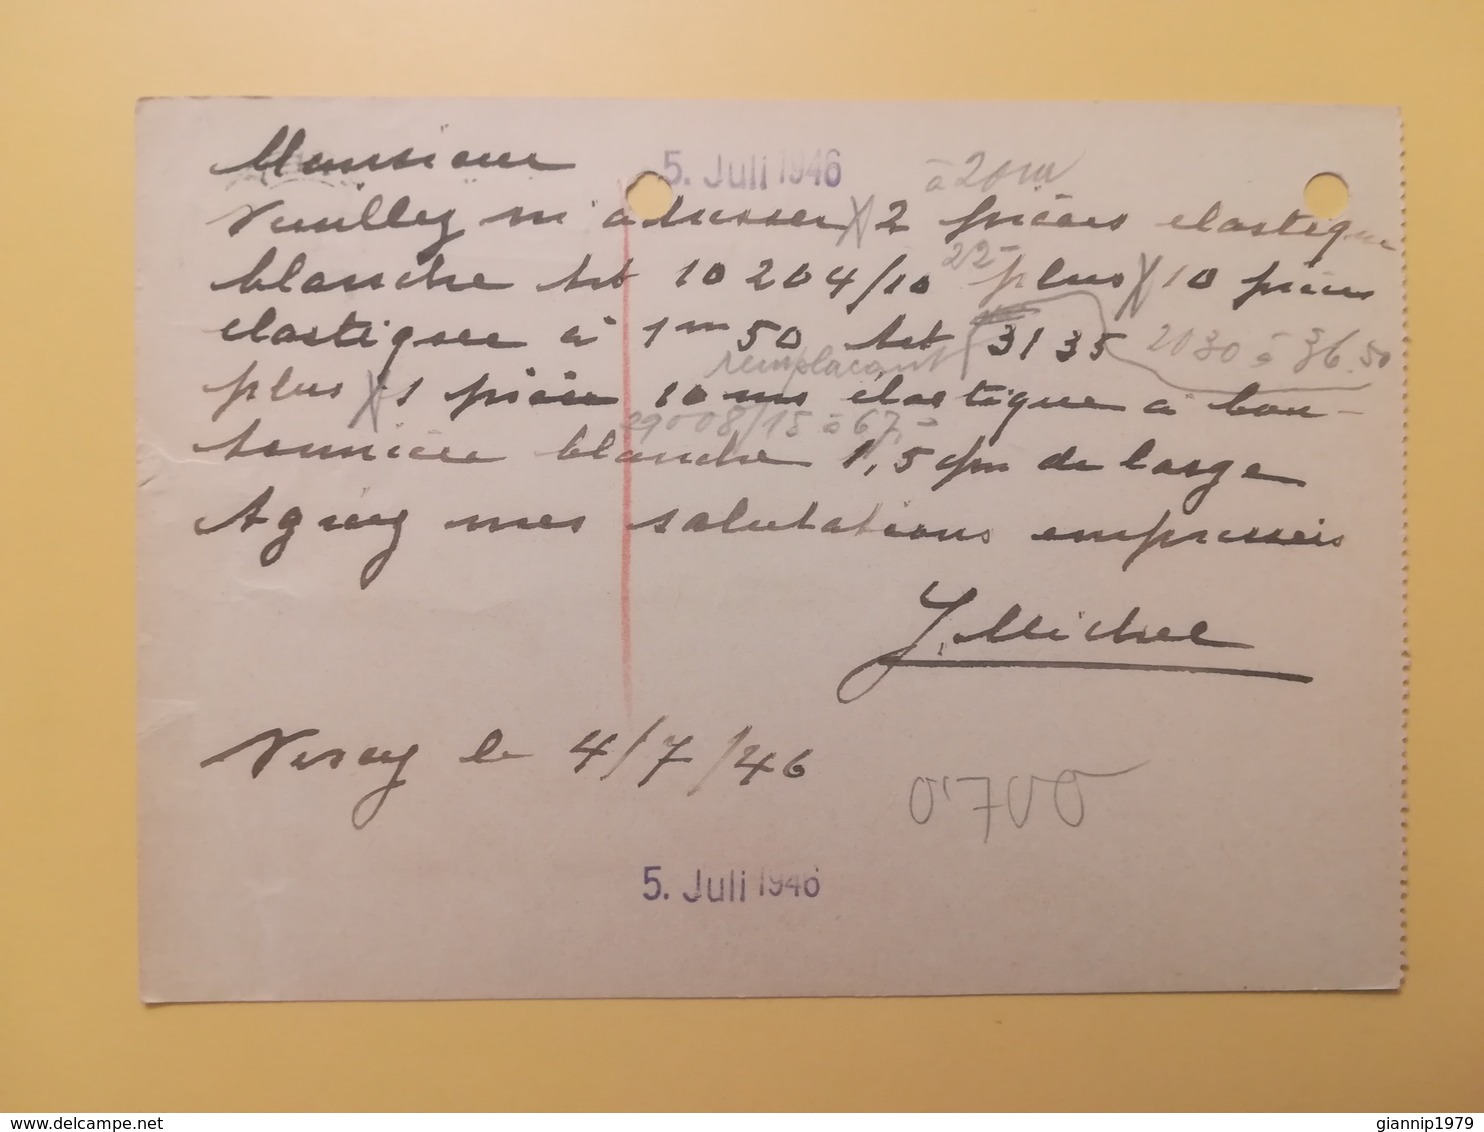 Monsieur
5. Juli 1946
à 20 m
Veuillez m'adresser 2 pièces élastique
22-
blanche Art 10204/10 plus 10 pièces
élastiques à 1m50 Art 3135 2030 à 36.50
remplaçant
plus 1 pièce 10 ms élastique à bou-
29008/15 à 67.-
tonnière blanche 1,5 c/m de large
Agréez mes salutations empressées
J. Michel
le 4/7/46
0'700
5. Juli 1946
delcampe.net
giannip1979